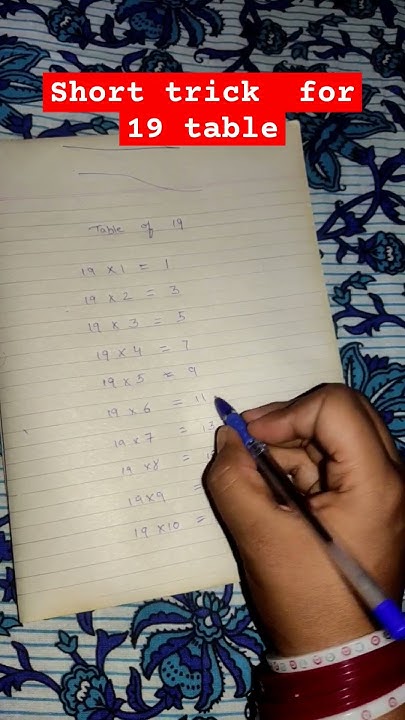 Short trick for
19 table
Table of 19
19 × 1 = 1
19 × 2 = 3
19 × 3 = 5
19 × 4 = 7
19 × 5 = 9
19 × 6 = 11
19 × 7 = 13
19 × 8 = 1
19 × 9 =
19 × 10 =